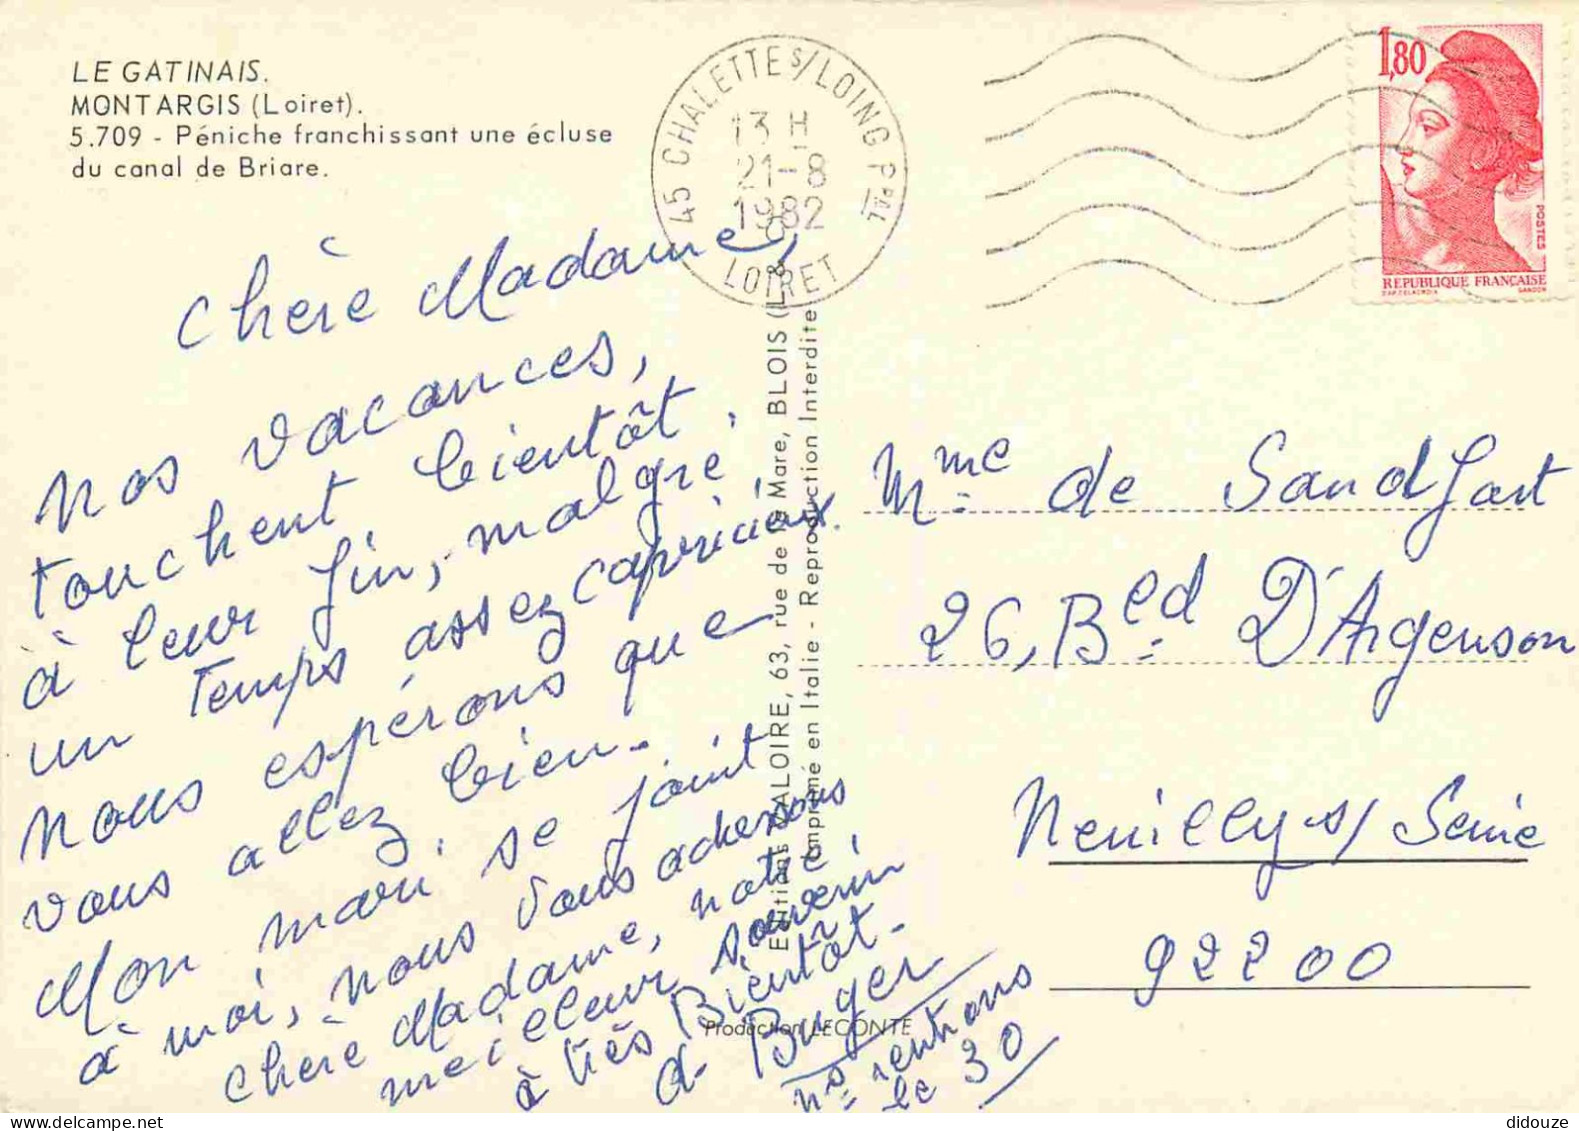 LE GATINAIS.
MONTARGIS (Loiret).
5.709 - Péniche franchissant une écluse
du canal de Briare.
45 CHALETTE S/LOING PPAL
13 H
21-8
1982
LOIRET
1,80
POSTES
REPUBLIQUE FRANÇAISE
D'AP. DELACROIX GANDON
Chère Madame,
Nos vacances,
touchent bientôt
à leur fin, malgré
un temps assez capricieux.
Nous espérons que
vous allez bien.
Mon mari se joint
à moi, nous vous adressons
chère Madame, notre
meilleur souvenir
à très Bientôt.
Burger
ns rentrons
le 30
Editions VALOIRE, 63, rue de la Mare, BLOIS (L
Imprimé en Italie - Reproduction Interdite
Production LECONTE
Mme de Sandfort
26, Bed D'Argenson
Neuilly s/ Seine
92200
didouze